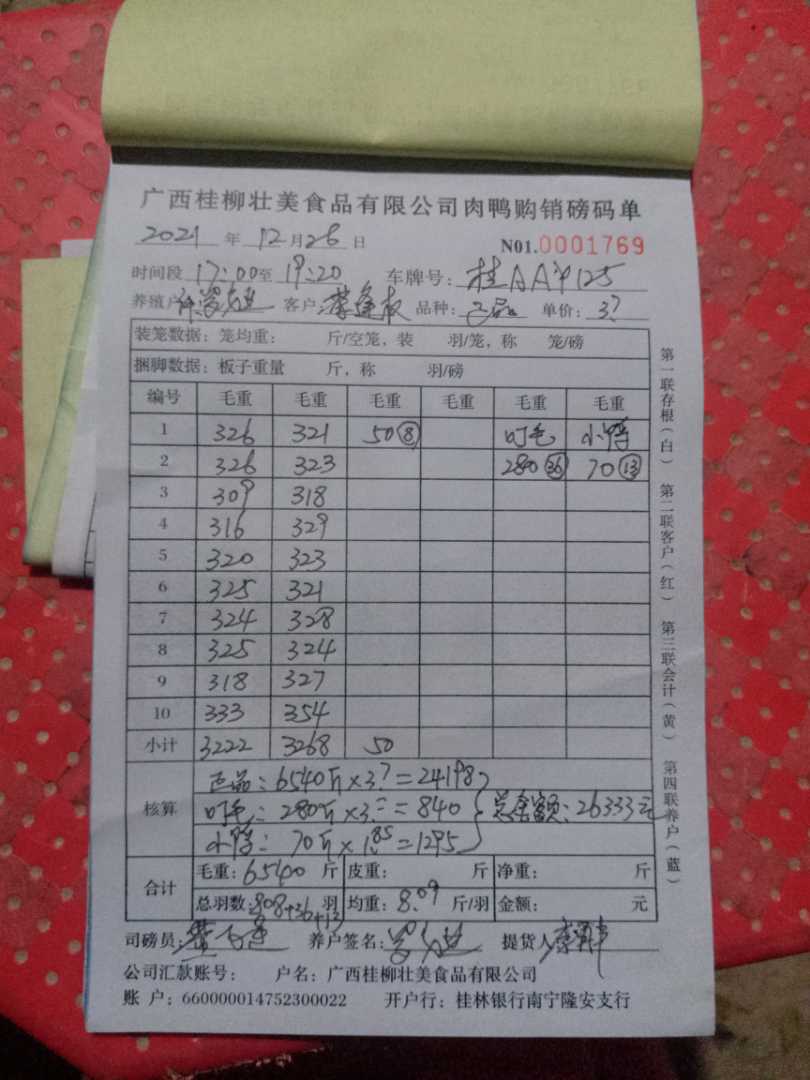 广西桂柳壮美食品有限公司肉鸭购销磅码单
2021 年 12 月 26 日 N01.0001769
时间段 17:00 至 19:20 车牌号: 桂AA
养殖户 客户: 品种: 正品 单价: 3.7
装笼数据: 笼均重: 斤/空笼, 装 羽/笼, 称 笼/磅
捆脚数据: 板子重量 斤, 称 羽/磅
编号 毛重 毛重 毛重 毛重 毛重 毛重
1 326 321 50⑧ 叮毛 小
2 326 323 280㊱ 70⑬
3 309 318
4 316 329
5 320 323
6 325 321
7 324 328
8 325 324
9 318 327
10 333 354
小计 3222 3268 50
核算
正品: 6540斤×3.7=24198
叮毛: 280斤×3.=840 总金额: 26333元
小 : 70斤×1.85=1295
合计
毛重: 6540 斤 皮重: 斤 净重: 斤
总羽数: 808+36+13 羽 均重: 8.09 斤/羽 金额: 元
司磅员: 养户签名: 提货人
公司汇款账号: 户名: 广西桂柳壮美食品有限公司
账 户: 660000014752300022 开户行: 桂林银行南宁隆安支行
第一联存根(白) 第二联客户(红) 第三联会计(黄) 第四联养户(蓝)